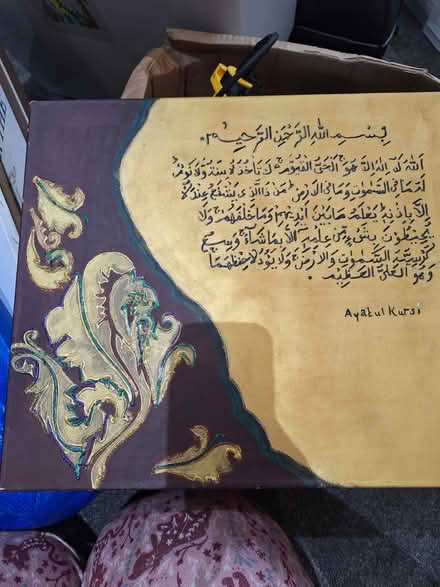 بِسْمِ اللهِ الرَّحْمٰنِ الرَّحِيْمِ
اَللهُ لَآ اِلٰهَ اِلَّا هُوَ الْحَيُّ الْقَيُّوْمُ لَا تَأْخُذُهُ سِنَةٌ وَّلَا نَوْمٌ
لَهُ مَا فِي السَّمٰوٰتِ وَمَا فِي الْاَرْضِ مَنْ ذَا الَّذِيْ يَشْفَعُ عِنْدَهُ
اِلَّا بِاِذْنِهٖ يَعْلَمُ مَا بَيْنَ اَيْدِيْهِمْ وَمَا خَلْفَهُمْ وَلَا
يُحِيْطُوْنَ بِشَيْءٍ مِّنْ عِلْمِهٖ اِلَّا بِمَا شَآءَ وَسِعَ
كُرْسِيُّهُ السَّمٰوٰتِ وَالْاَرْضَ وَلَا يَئُوْدُهُ حِفْظُهُمَا
وَهُوَ الْعَلِيُّ الْعَظِيْمُ .
Ayatul Kursi